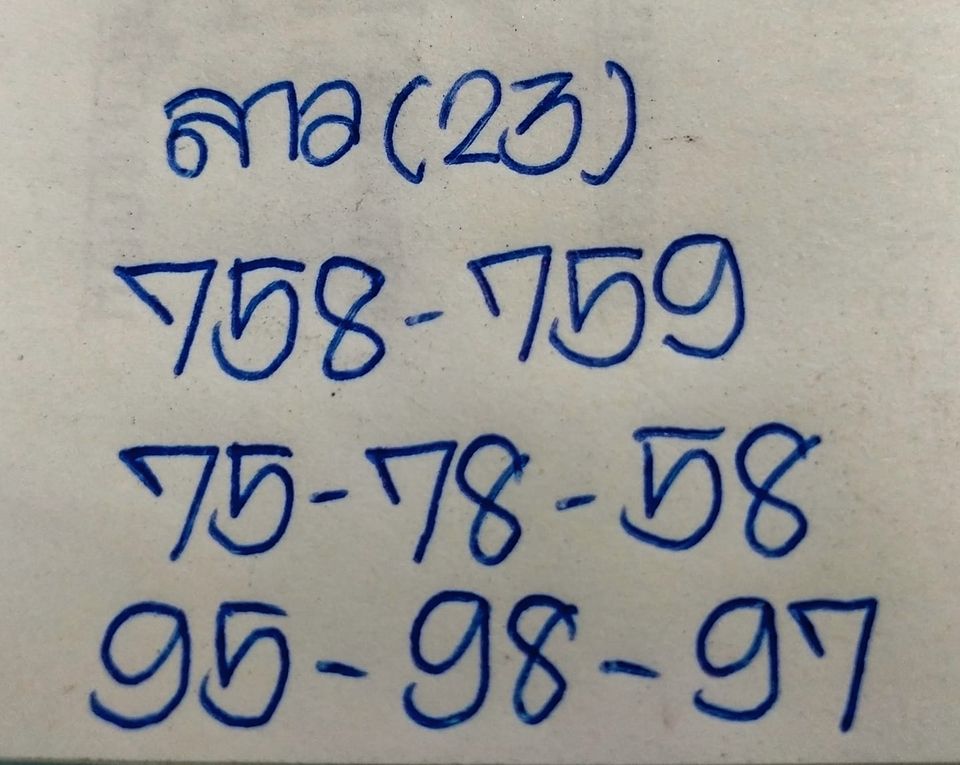 ลาว (23)
758 - 759
75 - 78 - 58
95 - 98 - 97